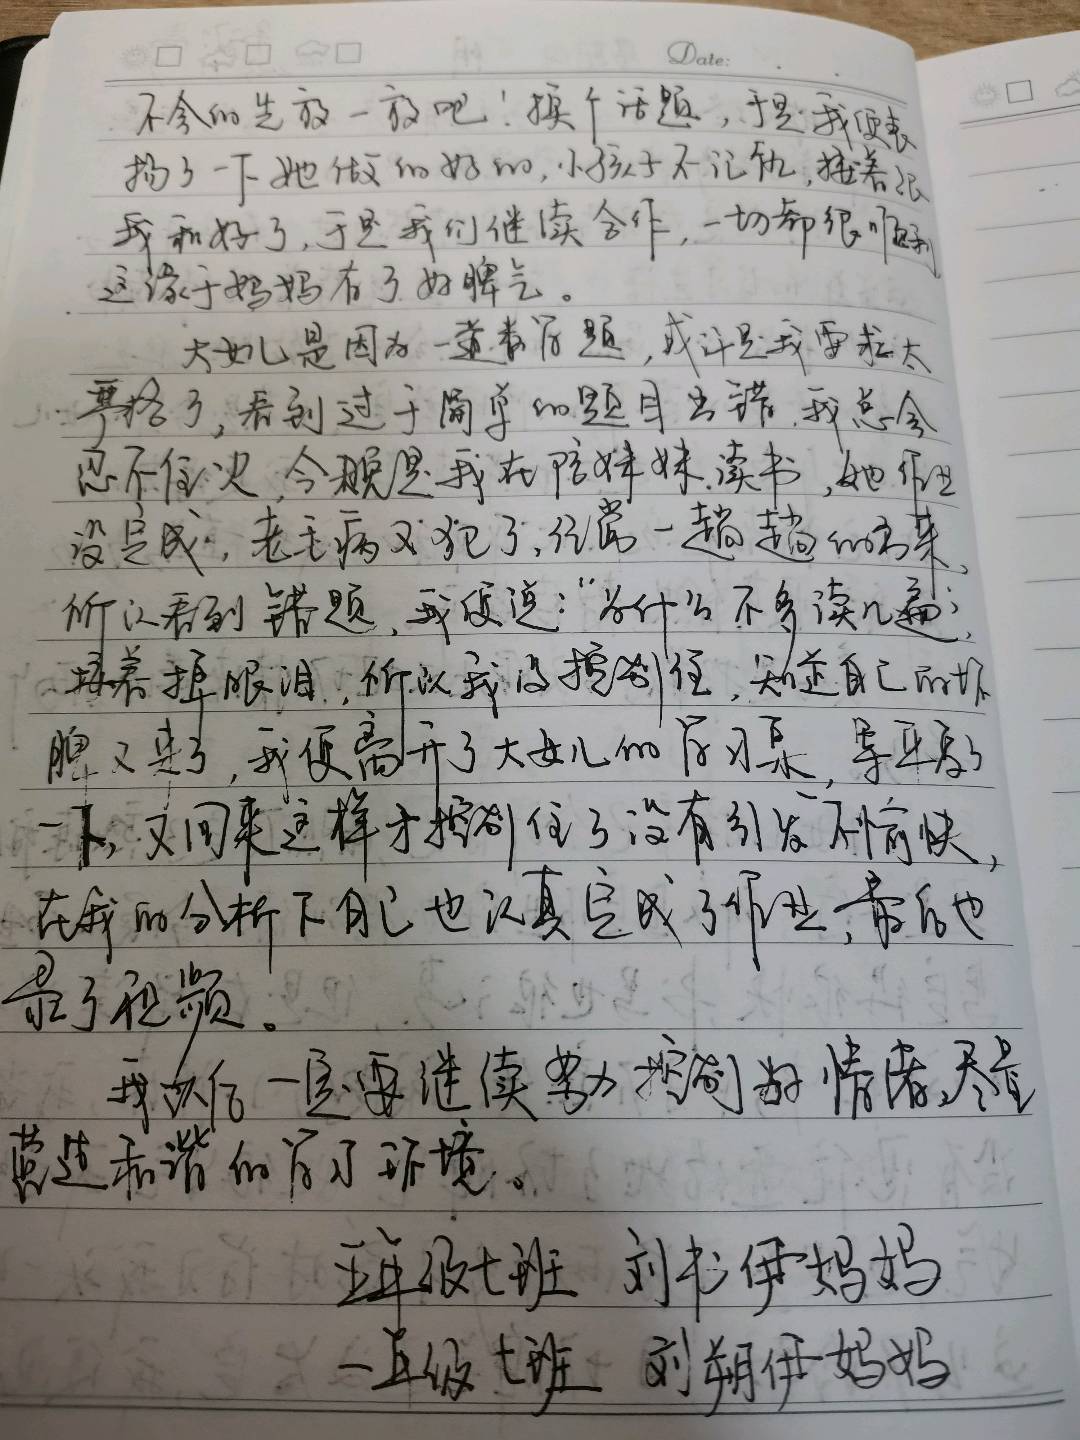 Date:
不会的先放一放吧!换个话题,于是我便表
扬了一下她做的好的,小孩子不记仇,接着跟
我和好了,于是我们继续合作,一切都很顺利
这缘于妈妈有了好脾气。
大女儿是因为一道数学题,或许是我要求太
严格了,看到过于简单的题目出错,我总会
忍不住火,今晚是我在陪妹妹读书,她作业
没完成,老毛病又犯了,经常一趟趟的出来,
所以看到错题,我便说:“为什么不多读几遍;
接着掉眼泪,所以我没控制住,知道自己的坏
脾又来了,我便离开了大女儿的学习桌,
一下,又回来这样才控制住了没有引发不愉快,
在我的分析下自己也认真完成了作业,最后也
录了视频。
我以后一定要继续努力控制好情绪,尽量
营造和谐的学习环境。
五年级七班 刘书伊妈妈
一年级七班 刘朔伊妈妈